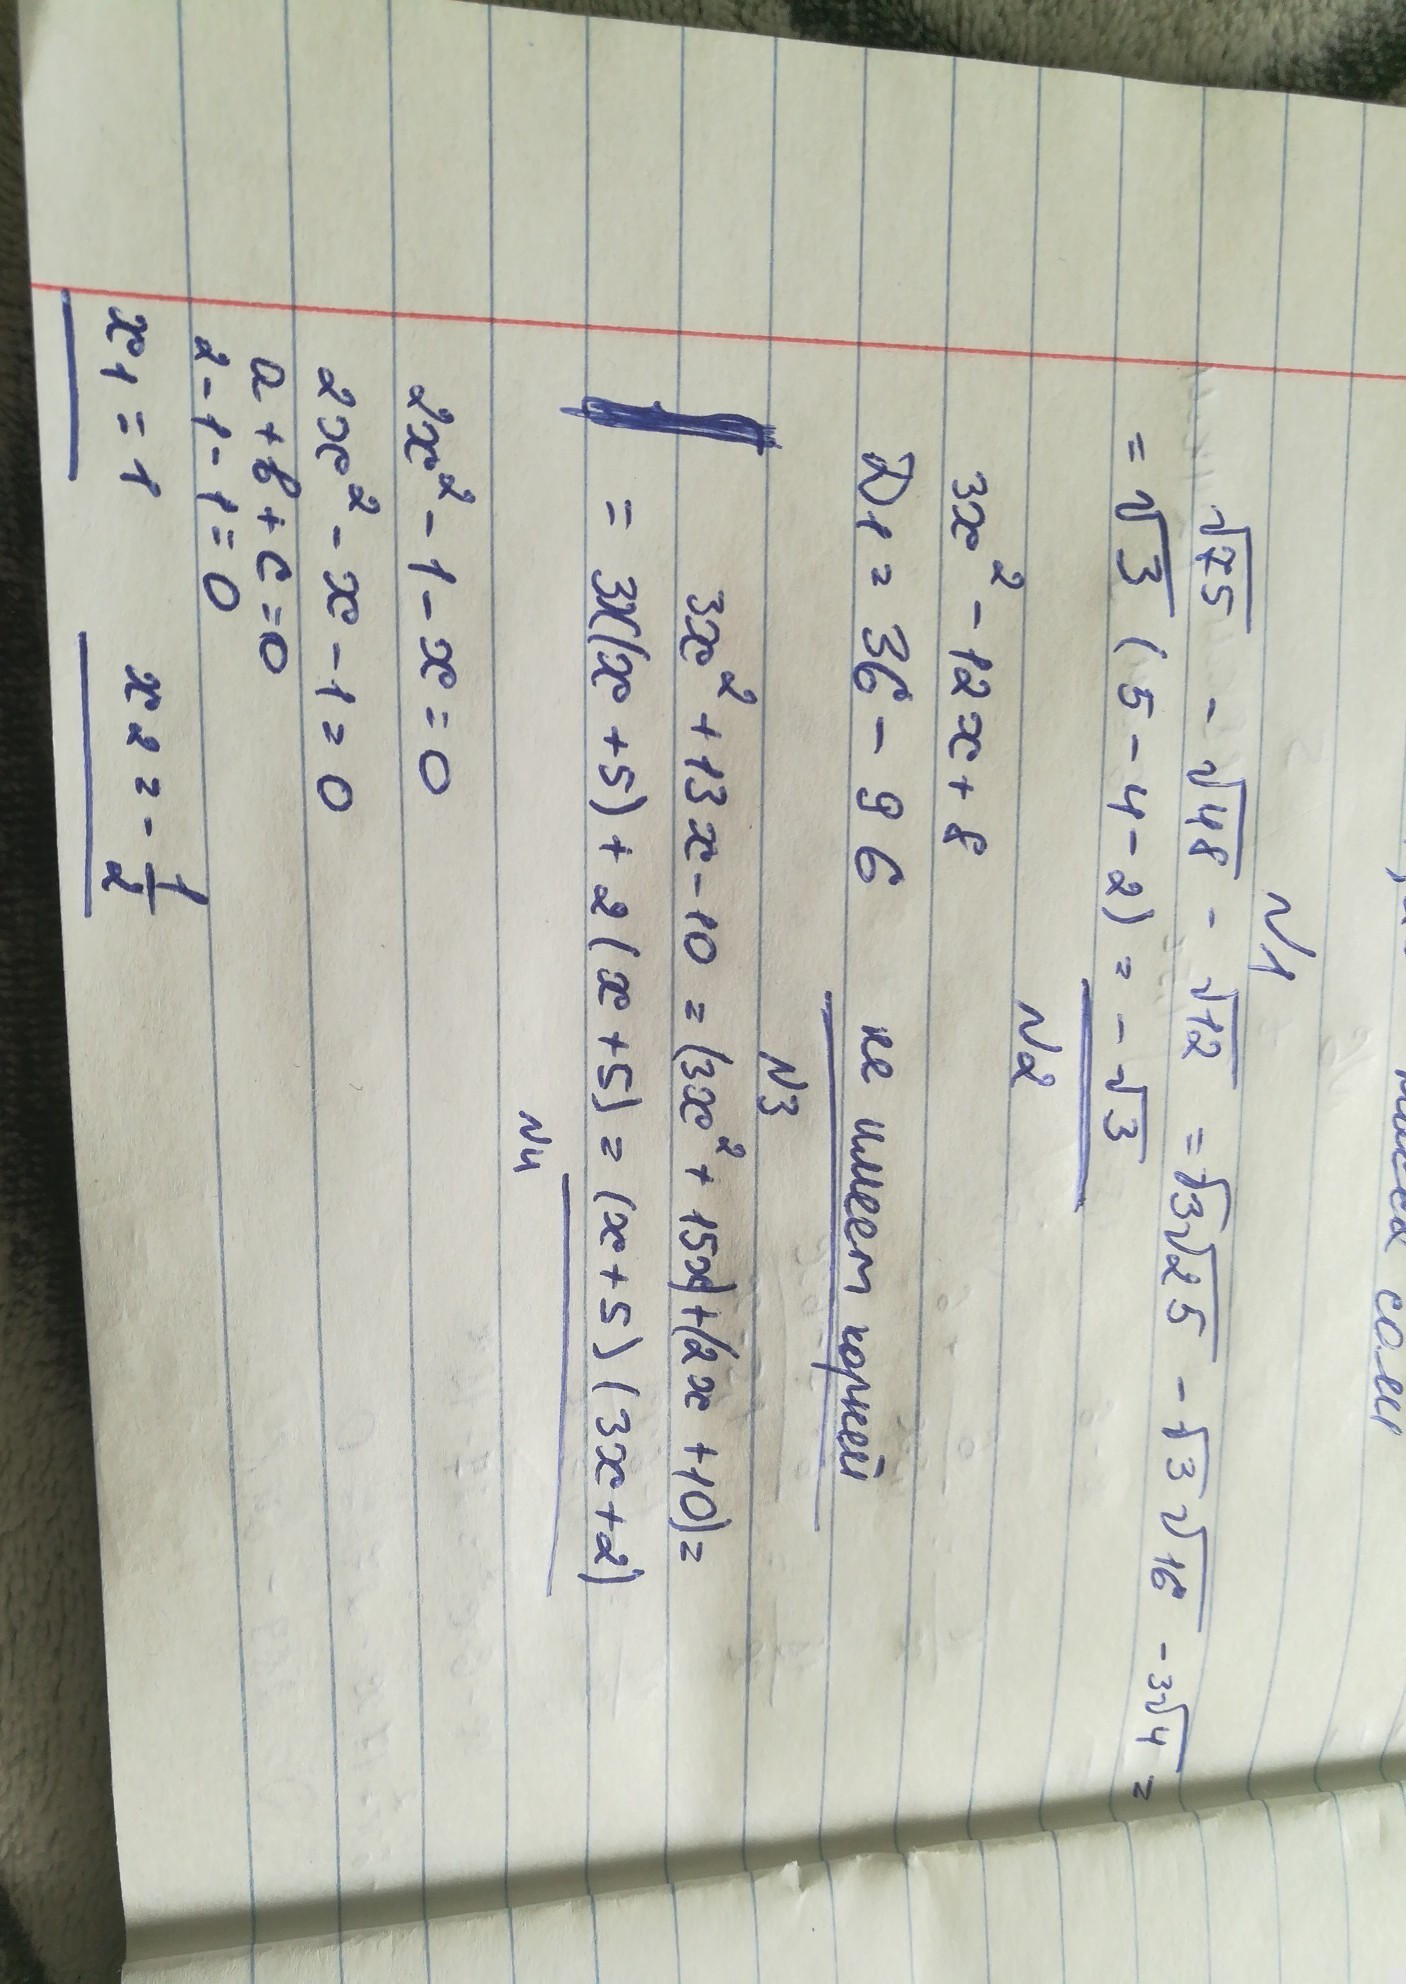 тся сам
N1
√75 - √48 - √12 = √3√25 - √3√16 - 3√4 =
= √3 (5 - 4 - 2) = - √3
N2
3x² - 12x + 8
D1 = 36 - 96 не имеет корней
N3
3x² + 13x - 10 = (3x² + 15x) + (2x + 10) =
= 3x(x + 5) + 2(x + 5) = (x + 5)(3x + 2)
N4
2x² - 1 - x = 0
2x² - x - 1 = 0
a + b + c = 0
2 - 1 - 1 = 0
x1 = 1 x2 = - 1/2